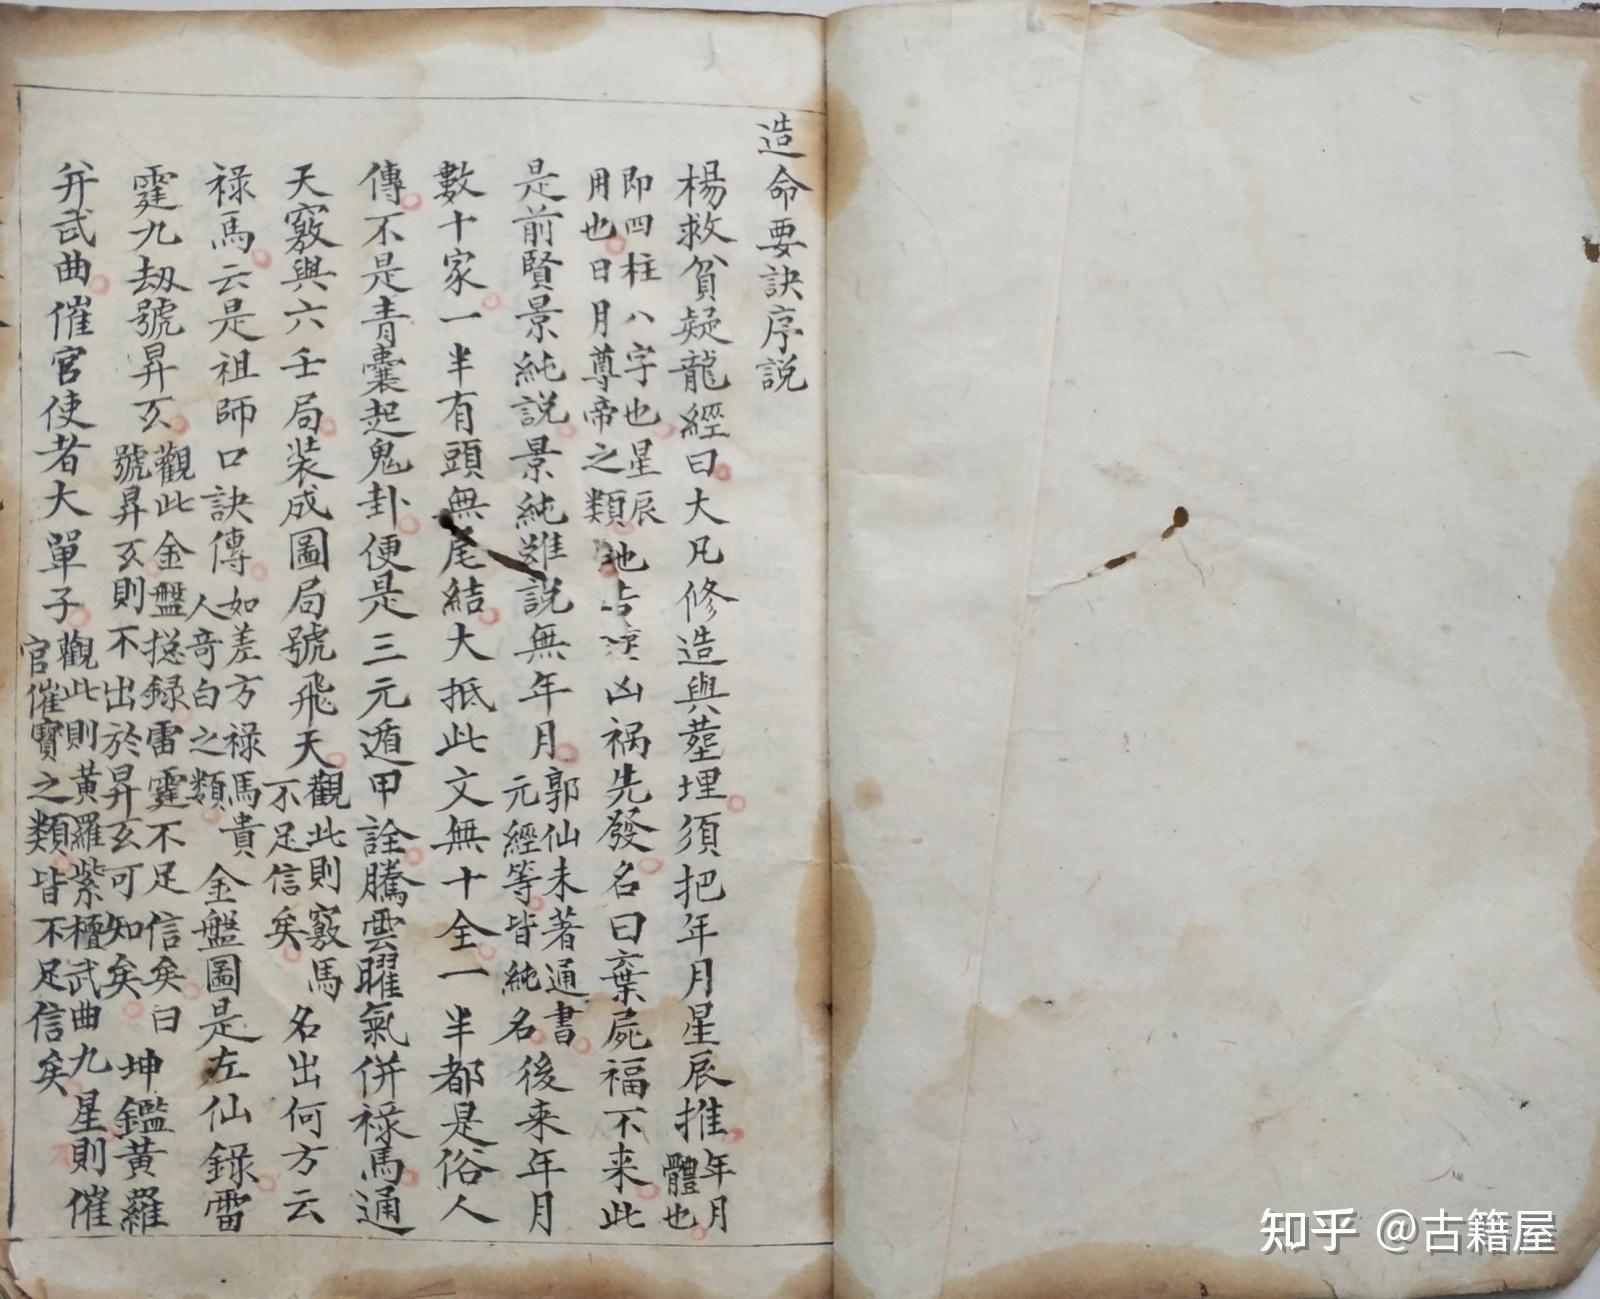 造命要訣序説
楊救貧疑龍經曰大凡修造與塟埋須把年月星辰推年月
體也
即四柱八字也星辰
用也日月尊帝之類地吉凶祸先發名曰棄屍福不来此
是前賢景純説景純雖説無年月郭仙未著通書
元經等皆純名後来年月
數十家一半有頭無尾結大抵此文無十全一半都是俗人
傳不是青囊起鬼卦便是三元遁甲詮騰雲曜氣併禄馬通
天竅與六壬局装成圖局號飛天觀此則竅馬
不足信矣名出何方云
禄馬云是祖師口訣傳如差方禄馬貴
人竒白之類金盤圖是左仙録雷
霆九劫號昇玄觀此金盤捴録雷霆不足信矣曰
號昇玄則不出於昇玄可知矣坤鑑黃羅
并武曲催官使者大單子觀此則黃羅紫檀武曲九星則催
官催寶之類皆不足信矣
知乎 @古籍屋